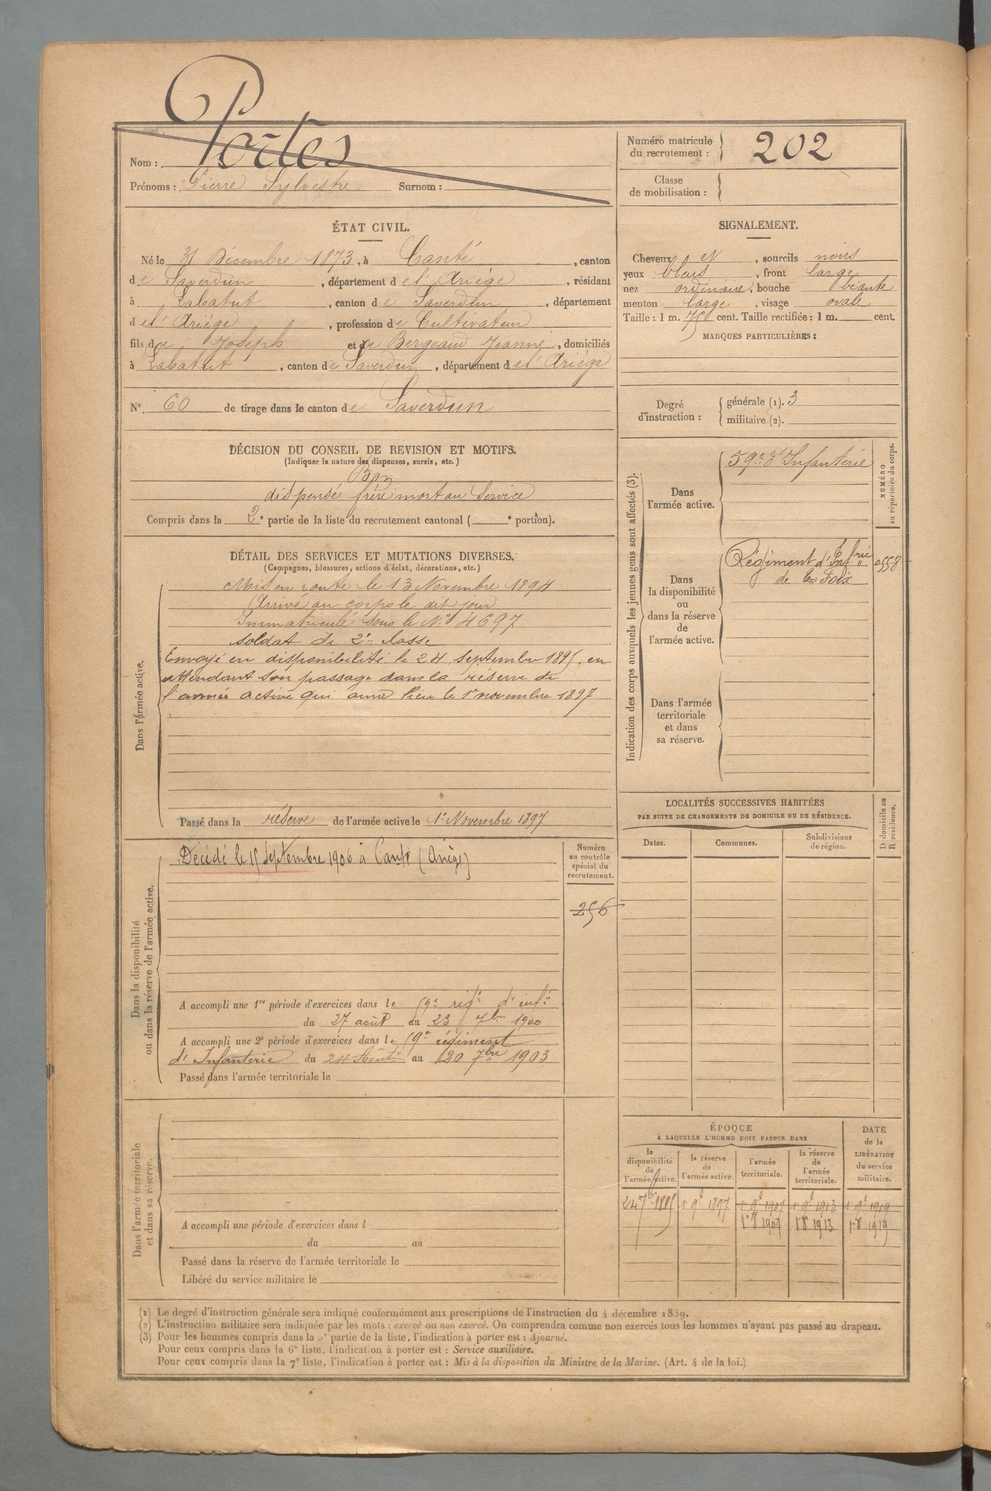 Nom : Portes
Prénoms : Pierre Sylvestre Surnom :
Numéro matricule du recrutement : 202
Classe de mobilisation :
ÉTAT CIVIL.
Né le 31 Décembre 1873, à Canté, canton
de Saverdun, département de l'Ariège, résidant
à Labatut, canton de Saverdun, département
de l'Ariège, profession de Cultivateur
fils de Joseph et de Bergeaud Jeanne, domiciliés
à Labatut, canton de Saverdun, département de l'Ariège
N° 60 de tirage dans le canton de Saverdun
SIGNALEMENT.
Cheveux et, sourcils noirs
yeux bleus, front large
nez ordinaire, bouche béante
menton large, visage ovale
Taille : 1 m. cent. Taille rectifiée : 1 m. cent.
MARQUES PARTICULIÈRES :
Degré d'instruction : générale (1). 3
militaire (2).
DÉCISION DU CONSEIL DE REVISION ET MOTIFS.
(Indiquer la nature des dispenses, sursis, etc.)
Bon
dispensé frère mort au service
Compris dans la 2e partie de la liste du recrutement cantonal ( e portion).
DÉTAIL DES SERVICES ET MUTATIONS DIVERSES.
(Campagnes, blessures, actions d'éclat, décorations, etc.)
Dans l'armée active.
Mis en route le 13 Novembre 1894
Arrivé au corps le dit jour
Immatriculé sous le N° 4697
soldat de 2e classe
Envoyé en disponibilité le 24 septembre 1895 en
attendant son passage dans la réserve de
l'armée active qui aura lieu le 1er novembre 1897
Passé dans la réserve de l'armée active le 1er Novembre 1897
Indication des corps auxquels les jeunes gens sont affectés (3).
NUMÉRO au répertoire du corps.
Dans l'armée active.
59e d'Infanterie
Dans la disponibilité ou dans la réserve de l'armée active.
Régiment d'Infrie
de Foix
Dans l'armée territoriale et dans sa réserve.
LOCALITÉS SUCCESSIVES HABITÉES
PAR SUITE DE CHANGEMENTS DE DOMICILE OU DE RÉSIDENCE.
D domicile ou R résidence.
Dates. Communes. Subdivisions de région.
Dans la disponibilité ou dans la réserve de l'armée active.
Décédé le 15 Septembre 1906 à Canté (Ariège)
Numéro au contrôle spécial du recrutement.
256
A accompli une 1re période d'exercices dans le 59e régt d'infie
du 27 août au 23 7bre 1900
A accompli une 2e période d'exercices dans le 59e régiment
d'Infanterie du 24 Août au 20 7bre 1903
Passé dans l'armée territoriale le
Dans l'armée territoriale et dans sa réserve.
A accompli une période d'exercices dans l
du au
Passé dans la réserve de l'armée territoriale le
Libéré du service militaire le
ÉPOQUE
À LAQUELLE L'HOMME DOIT PASSER DANS
la disponibilité de l'armée active. la réserve de l'armée active. l'armée territoriale. la réserve de l'armée territoriale.
DATE de la LIBÉRATION du service militaire.
24 7bre 1895 1er 9bre 1897 1er 9bre 1907 1er 9bre 1913 1er 9bre 1919
1er 8 1907 1er 8 1913 1er 8 1919
(1) Le degré d'instruction générale sera indiqué conformément aux prescriptions de l'instruction du 4 décembre 1889.
(2) L'instruction militaire sera indiquée par les mots : exercé ou non exercé. On comprendra comme non exercés tous les hommes n'ayant pas passé au drapeau.
(3) Pour les hommes compris dans la 5e partie de la liste, l'indication à porter est : Ajourné.
Pour ceux compris dans la 6e liste, l'indication à porter est : Service auxiliaire.
Pour ceux compris dans la 7e liste, l'indication à porter est : Mis à la disposition du Ministre de la Marine. (Art. 4 de la loi.)